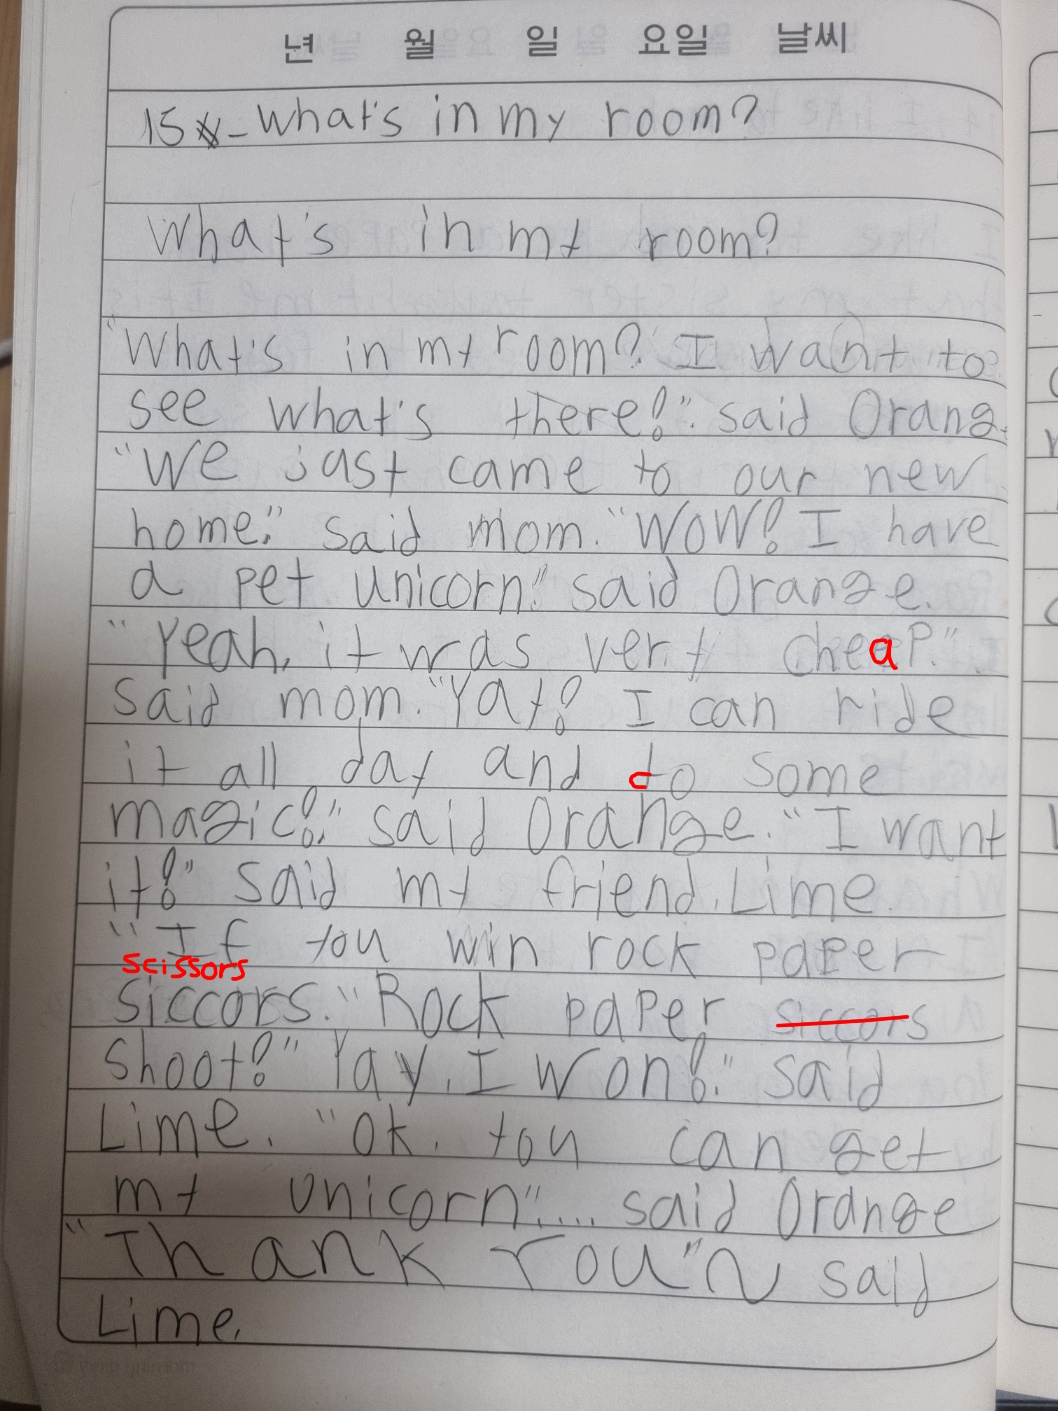 년 월 일 요일 날씨
15 - What's in my room?
What's in my room?
"What's in my room? I want to
see what's there!". said Orang
"We just came to our new
home." said mom. "WOW! I have
a pet unicorn!" said Orange.
"Yeah, it was very cheap.".
said mom. "Yay! I can ride
it all day and do some
magic!." said Orange. "I want
it!" said my friend, Lime.
"If you win rock paper
scissors
siccors." Rock paper siccors
shoot!" Yay, I won!." said
Lime. "Ok. you can get
my unicorn".... said Orange
"Thank You"~ said
Lime.